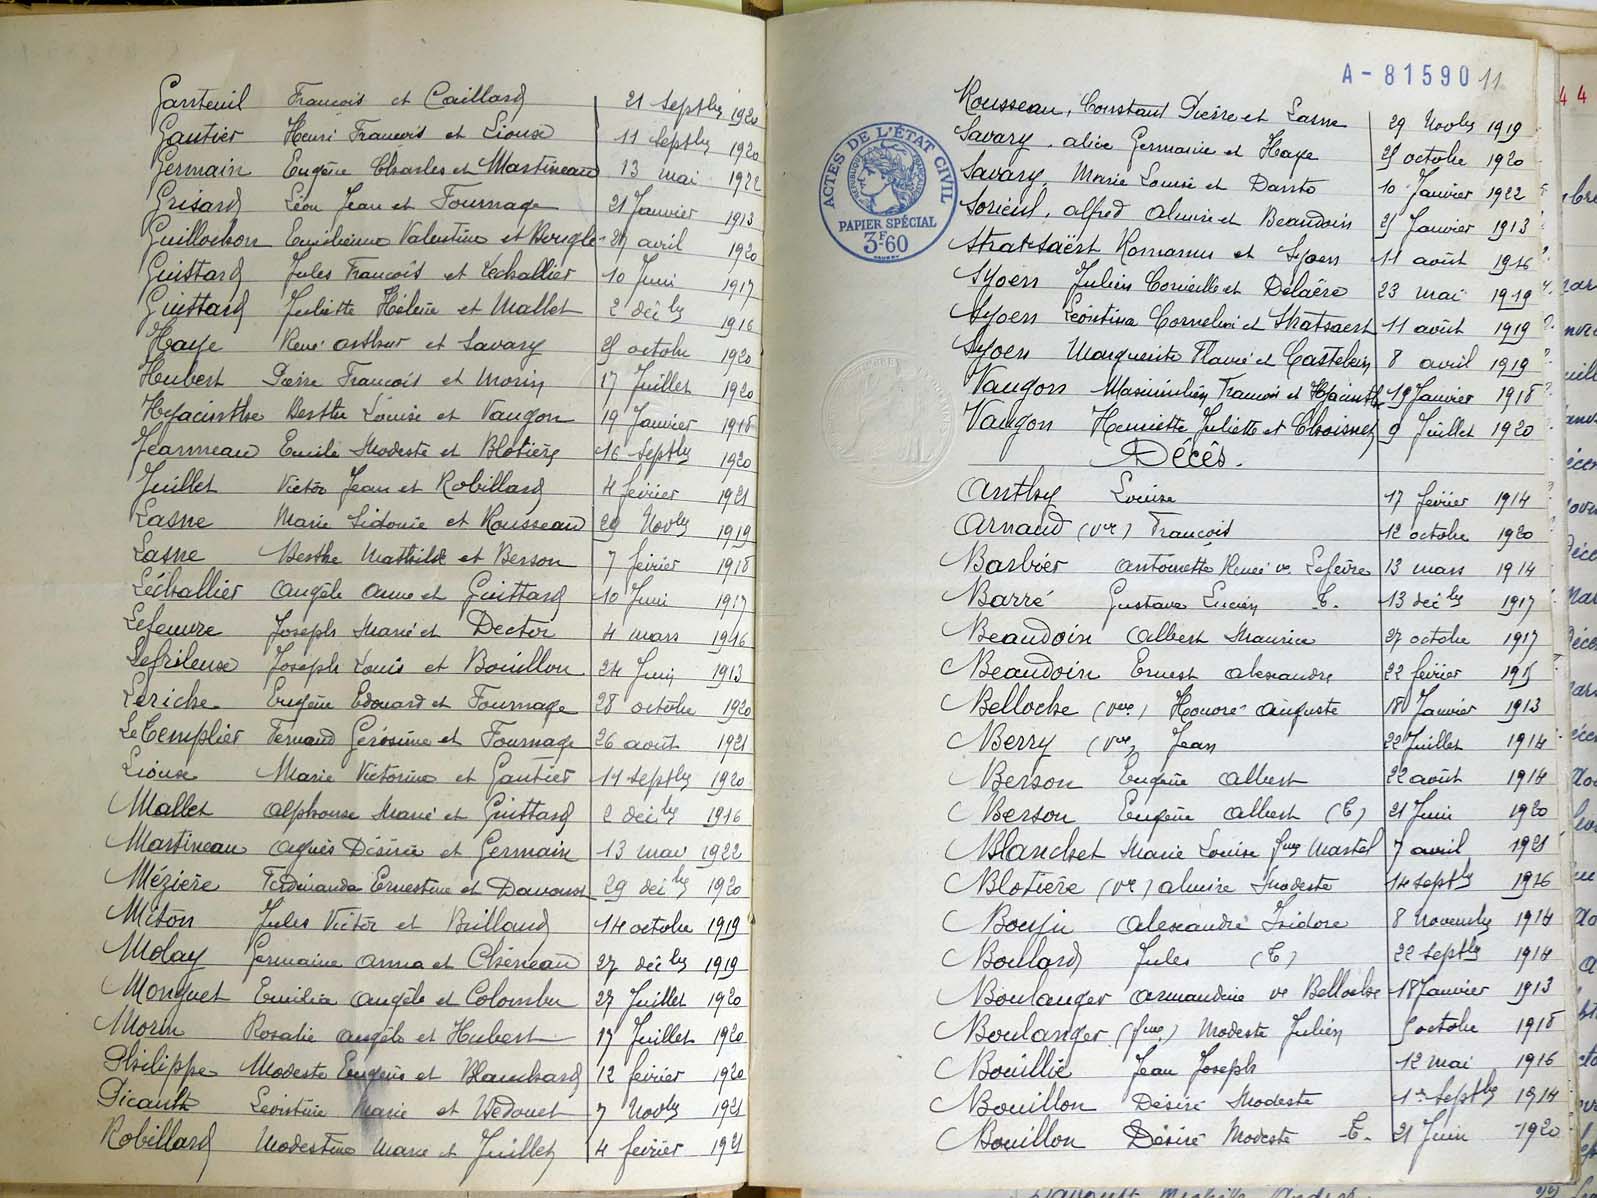 Ganteuil François et Caillard 21 septbre 1920
Gautier Henri François et Liouse 11 septbre 1920
Germain Eugène Charles et Martineau 13 mai 1922
Grisard Léon Jean et Fournage 21 Janvier 1913
Guillochon Emilienne Valentine et 27 avril 1920
Guittard Jules François et Lechallier 10 Juin 1917
Guittard Juliette Hélène et Mallet 2 décbre 1916
Haye René arthur et Savary 25 octobre 1920
Hubert Pierre François et Morin 17 Juillet 1920
Hyacinthe Berthe Louise et Vaugon 19 Janvier 1918
Jeanneau Emile Modeste et Blotière 16 septbre 1920
Juillet Victor Jean et Robillard 4 février 1921
Lasne Marie Sidonie et Rousseau 29 Novbre 1919
Lasne Berthe Mathilde et Berson 7 février 1918
Léchallier angèle anne et Guittard 10 Juin 1917
Lefeuvre Joseph Marie et Dector 4 mars 1916
Lefrileuse Joseph Louis et Bouillon 24 Juin 1913
Leriche Eugène Edouard et Fournage 28 octobre 1920
Le Templier Fernand Gérosime et Fournage 26 août 1921
Liouse Marie Victorine et Gautier 11 septbre 1920
Mallet alphonse Marie et Guittard 2 décbre 1916
Martineau agnès Désirée et Germain 13 mai 1922
Mézière Ferdinanda Ernestine et Davoust 29 décbre 1920
Miton Jules Victor et Brilland 14 octobre 1919
Molay Germaine anna et Chéneau 27 décbre 1919
Monguet Emilia angèle et Colombu 27 Juillet 1920
Morin Rosalie angèle et Hubert 17 Juillet 1920
Philippe Modeste Eugène et Blanchard 12 février 1920
Picault Léontine Marie et Hédouet 7 Novbre 1921
Robillard Modestine Marie et Juillet 4 février 1921
A-81590 11
Rousseau, Constant Pierre et Lasne 29 Novbre 1919
Savary, alice Germaine et Haye 25 octobre 1920
Savary, Marie Louise et 10 Janvier 1922
Sorieul, alfred almire et Beaudoin 25 Janvier 1913
Stratsaërt Romanus et Syoen 11 août 1916
Syoen Julien Corneille et Delaëre 23 mai 1919
Syoen Léontina Cornelie et Stratsaert 11 août 1919
Syoen Marguerite Flavie et Castelein 8 avril 1919
Vaugon Maximilien François et Hyacinthe 19 Janvier 1918
Vaugon Henriette Juliette et Choisnet 9 Juillet 1920
Décès.
Anthy Louise 17 février 1914
Arnaud (ve) François 12 octobre 1920
Barbier antoinette Renée ve Lefèvre 13 mars 1914
Barré Gustave Lucien T. 13 décbre 1917
Beaudoin albert Maurice 27 octobre 1917
Beaudoin Ernest alexandre 22 février 1915
Belloche (vve) Honoré auguste 18 Janvier 1913
Berry (vve) Jean 22 Juillet 1914
Berson Eugène albert 22 août 1914
Berson Eugène albert (T) 21 Juin 1920
Blanchet Marie Louise fme Martel 7 avril 1921
Blotière (ve) almire Modeste 14 septbre 1916
Bouju alexandre Isidore 8 Novembre 1914
Boulard Jules (T) 22 septbre 1914
Boulanger armandine ve Belloche 18 Janvier 1913
Boulanger (fme) Modeste Julien 5 octobre 1918
Bouillie Jean Joseph 12 mai 1916
Bouillon Désiré Modeste 1er septbre 1914
Bouillon Désiré Modeste T. 21 Juin 1920
ACTES DE L'ÉTAT CIVIL
PAPIER SPÉCIAL
3F60
44